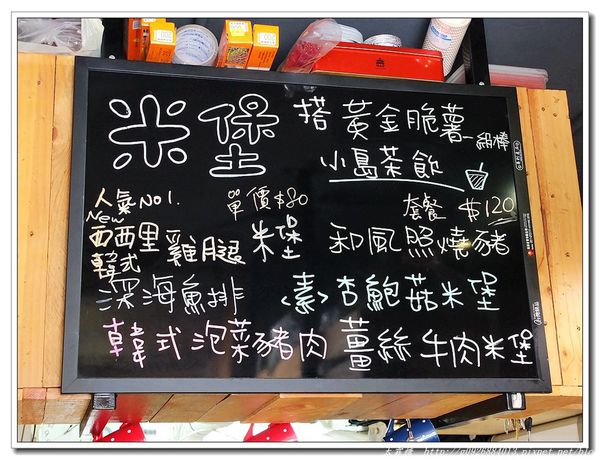 米堡 搭 黃金脆薯一級棒
小島茶飲
人氣NO1. 單價$80 套餐 $120
New
西西里 雞腿 米堡 和風照燒豬
韓式
深海魚排 <素>杏鮑菇米堡
韓式泡菜豬肉 薑絲牛肉米堡